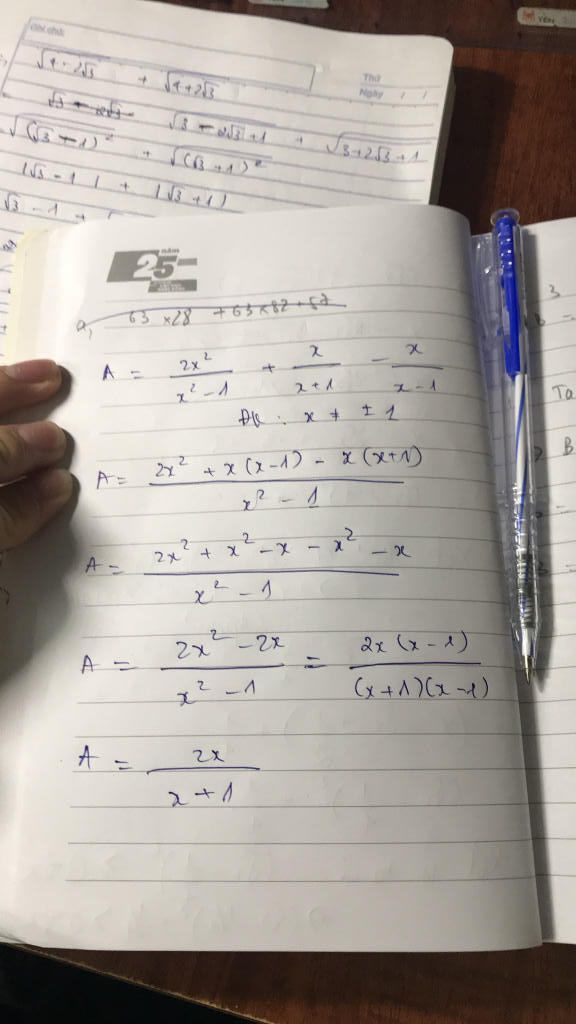 Ghi chú:
Thứ
Ngày / /
√4 - 2√3 + √4+2√3
√3 - 2√3
√3 - 2√3 + 1 + √3+2√3+1
√(√3 - 1)² + √(√3 + 1)²
|√3 - 1| + |√3 + 1|
√3 - 1 +
năm
25
a, 63 × 28 + 63 × 82 + 57
A = 2x²/(x² - 1) + x/(x+1) - x/(x-1)
ĐK : x ≠ ± 1
A = (2x² + x(x-1) - x(x+1))/(x² - 1)
A = (2x² + x² - x - x² - x)/(x² - 1)
A = (2x² - 2x)/(x² - 1) = 2x(x - 1)/((x+1)(x-1))
A = 2x/(x + 1)
3
Ta
B